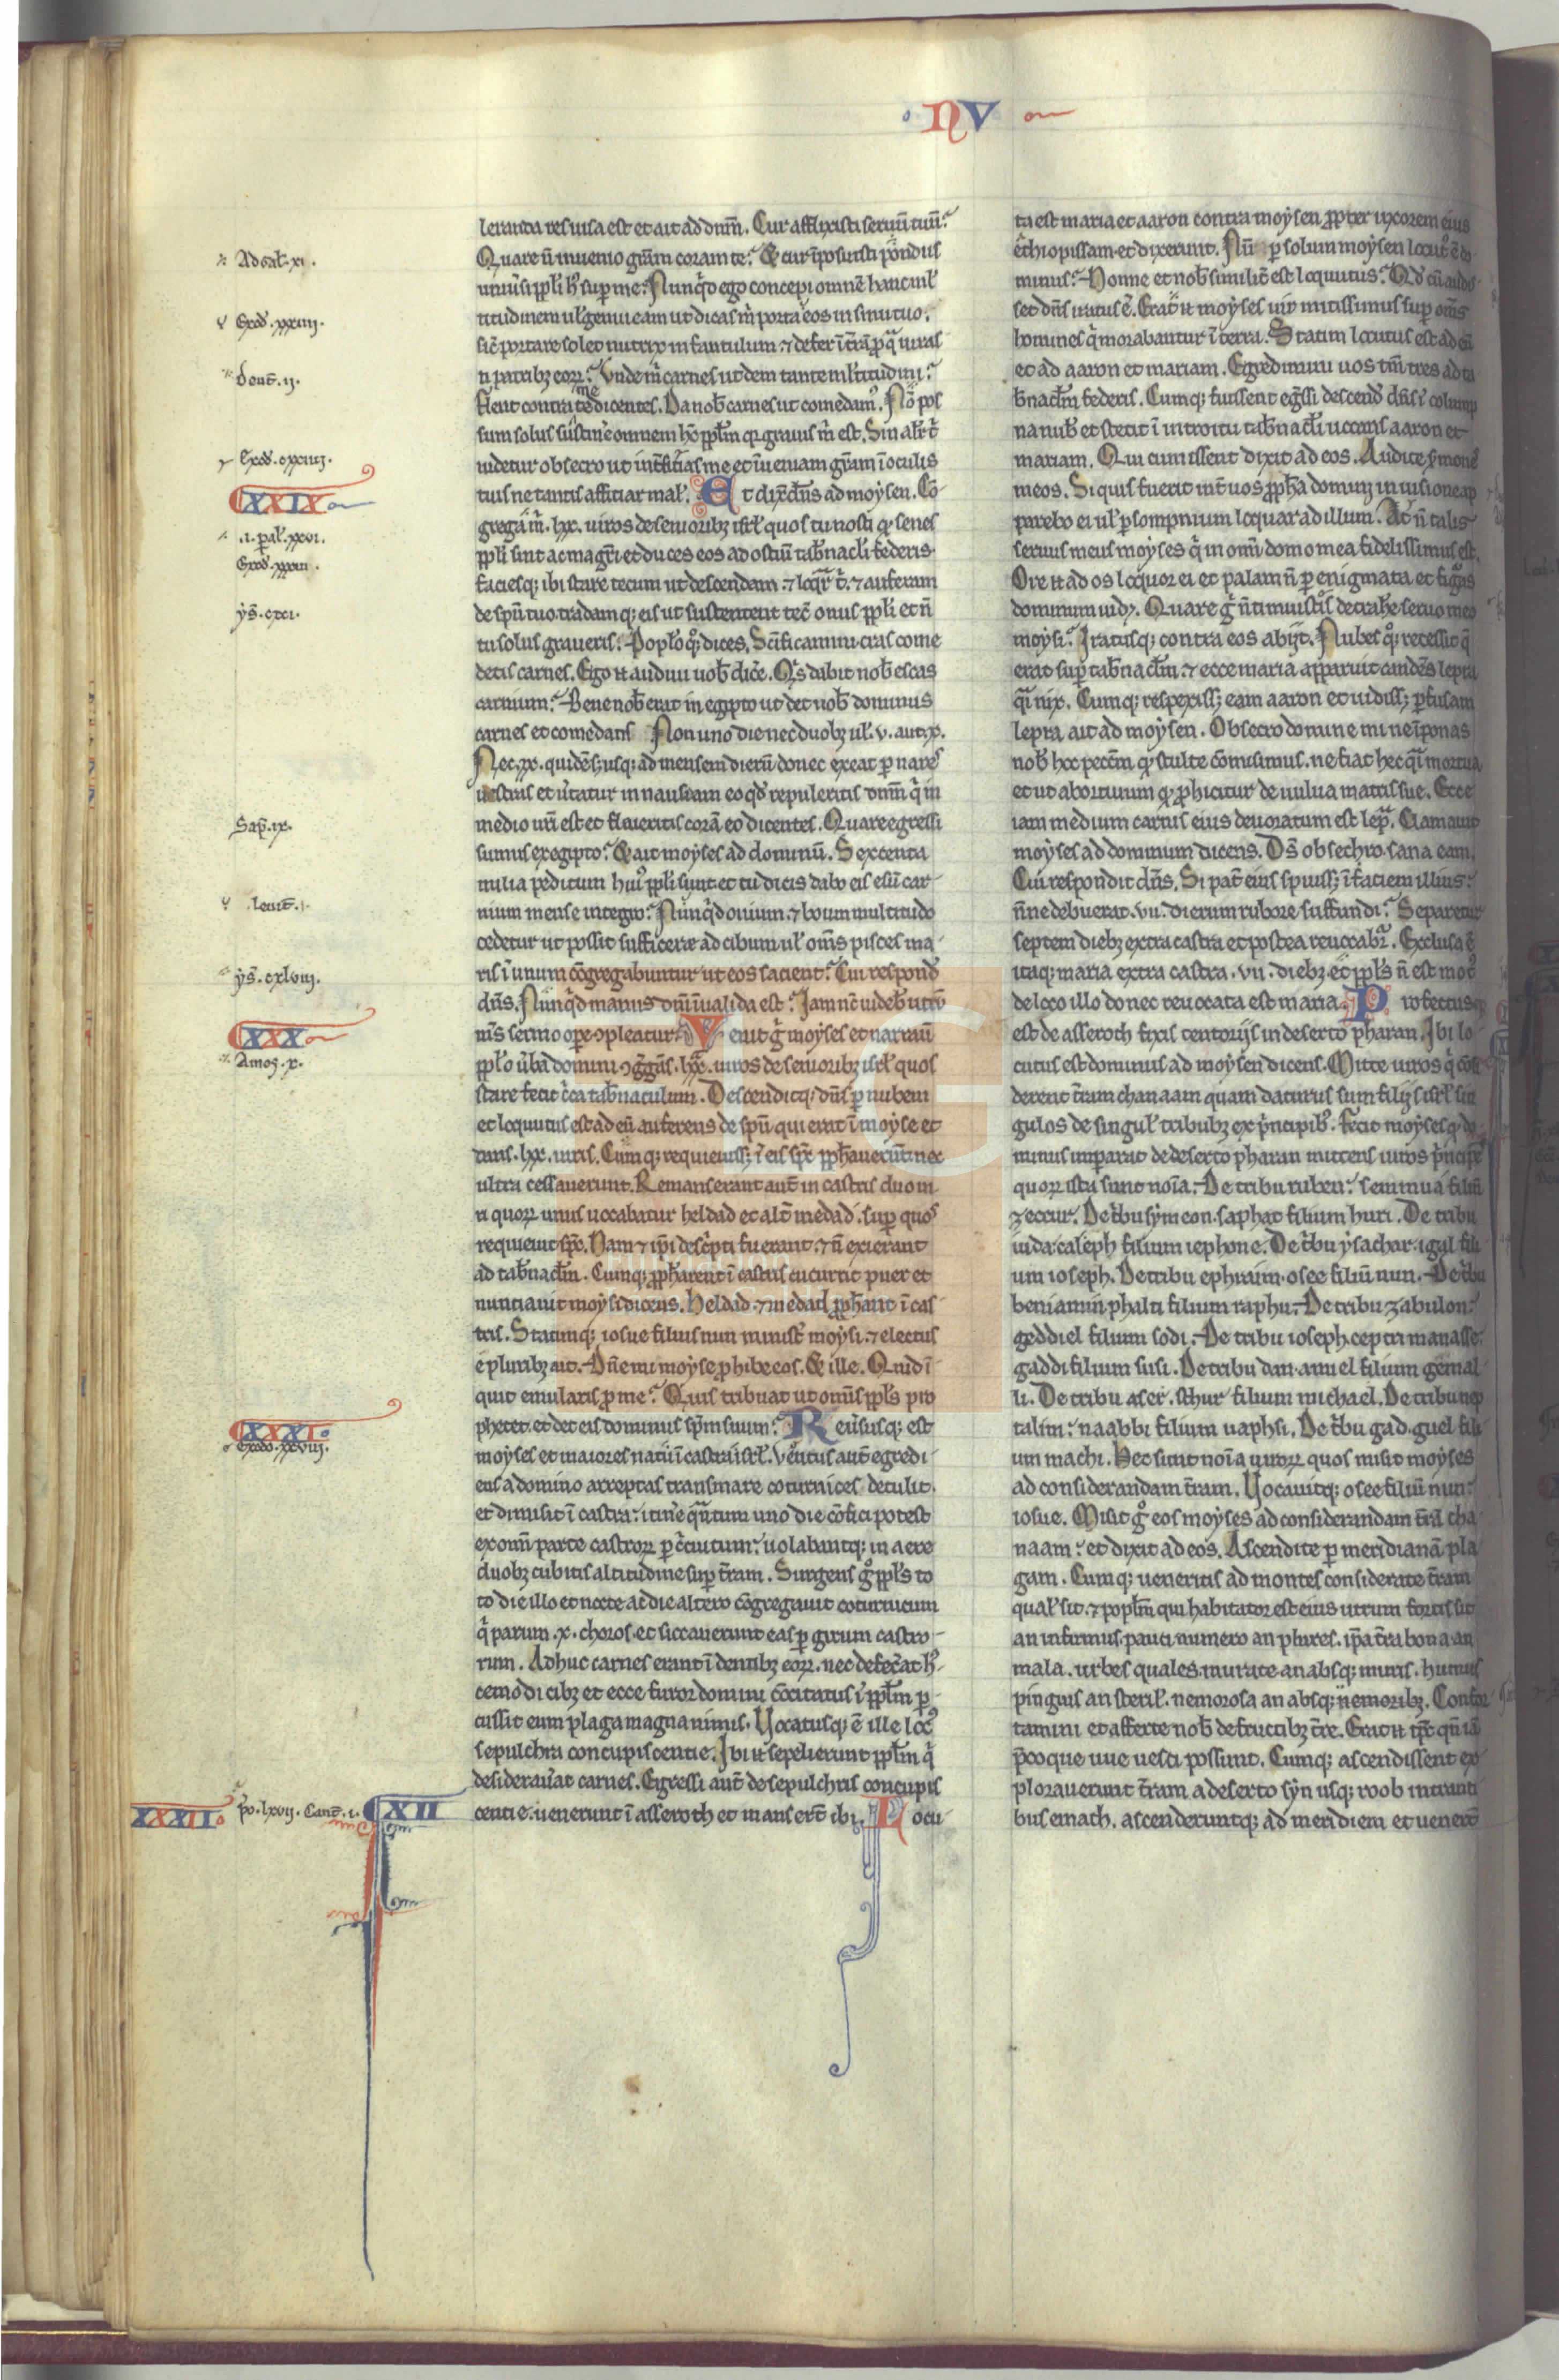 NV
leranda res uisa est et ait ad dnm̄. Cur afflixisti seruū tuū?
Quare n̄ inuenio grām coram te? Et cur īposuisti pondus
uniūsi ppl̄i h̓ sup me? Nunq̓d ego concepi omnē hanc ml̓
titudinem ul̓ genui eam ut dicas m̓ porta eos in sinu tuo.
sic̄ portare solet nutrix infantulum ⁊ defer ī t̄rā p̱ q̄ iuras
ti patribꝫ eoꝝ? Vnde m̓ carnes ut dem tante ml̓titudini?
flent contra me dicentes. Da nob̓ carnes ut comedam᷒. Nō pos
sum solus sustinē omnem hc̄ ppl̄m qr grauis m̓ est. Sin alit̓ t̓
uidetur obsecro ut int̄ficias me et īueniam grām ī oculis
tuis ne tantis afficiar mal̓. Et dix̄ dn̄s ad moysen. Cō
grega m̓. lxx. uiros de senioribꝫ isrl̓ quos tu nosti qͥ senes
ppl̄i sint ac magr̄i et duces eos ad ostiū tab̓nacl̓i federis
faciesqꝫ ibi stare tecum ut descendam ⁊ loqr̄ t̓. ⁊ auferam
de spū tuo tradamqꝫ eis ut sustentent tec̄ onus ppl̄i et n̄
tu solus graueris. Popl̓o qꝫ dices. Sc̄ificamini cras come
detis carnes. Ego n̄ audiui uob̓ dic̓e. Qͥs dabit nob̓ escas
carnium? Bene nob̓ erat in egipto ut det uob̓ dominus
carnes et comedatis Non uno die nec duobꝫ ul̓. v. aut. x.
Nec. xx. quidē sꝫ usqꝫ ad mensem dierū donec exeat p̱ nares
uestras et ūtatur in nauseam eo qd̓ repuleritis dnm̄ q̓ in
medio ur̄i est et fleueritis corā eo dicentes. Quare egressi
sumus ex egipto? Et ait moyses ad dominū. Sexcenta
milia peditum hui᷒ ppl̄i sunt et tu dicis dabo eis esū car
nium mense integro? Nunq̓d ouium ⁊ boum multitudo
cedetur ut possit sufficere ad cibum ul̓ om̄s pisces ma
ris ī unum cōgregabuntur ut eos sacient? Cui respond̓
dn̄s. Nunq̓d manus dnī īualida est? Iam nc̄ uideb̓ utrū
ms̄ sermo ope ɔpleatur. Venit g̓ moyses et narrauit
ppl̓o ūba domini ɔg̓gās. lxx. uiros de senioribꝫ isrl̓ quos
stare fecit c̓ca tab̓naculum. Descenditqꝫ dn̄s p̱ nubem
et loquutus est ad eū auferens de spū qui erat ī moyse et
dans. lxx. uiris. Cumqꝫ requieuissꝫ ī eis spc̄ pph̄auerūt nec
ultra cessauerunt. Remanserant aut̄ in castris duo ui
ri quoꝝ unus uocabatur heldad et alt̄ medad. sup quos
requieuit spc̄. Nam ⁊ ip̄i desc̓pti fuerant ⁊ n̄ exierant
ad tab̓nacl̓m. Cumqꝫ pph̄arent ī castris cucurrit puer et
nuntiauit moysi dicens. Heldad ⁊ medad pph̄ant ī cas
tris. Statimqꝫ iosue filius nun minist̓ moysi ⁊ electus
e pluribꝫ ait. Dn̄e mi moyse p̱hibe eos. Et ille. Quid ī
quit emularis p̱ me? Quis tribuat ut omīs ppl̓s pro
phetet et det eis dominus spm̄ suum? Reuersusqꝫ est
moyses et maiores natu ī castra isrl̓. Ventus aut̄ egredi
ens a domino arreptas transmare coturnices detulit
et dimisit ī castra. itinē q̄ntum uno die cōfici potest
ex omi parte castroꝝ p̱ c̓cuitum. uolabantqꝫ in aere
duobꝫ cubitis altitudine sup t̄ram. Surgens g̓ ppl̓s to
to die illo et nocte ac die altero cōgregauit coturnicum
q̓ parum. x. choros. et siccauerunt eas p̱ girum castro
rum. Adhuc carnes erant ī dentibꝫ eoꝝ. nec defec̄at h̓
cemodi cibꝫ et ecce furor domini cōcitatus ī ppl̓m p̱
cussit eum plaga magna nimis. Vocatusqꝫ ē ille loc᷒
sepulchra concupiscentie. Ibi n̄ sepelierunt ppl̓m q̓
desiderau̓at carnes. Egressi aut̄ de sepulchris concupis
centie. uenerunt ī asseroth et manserūt ibi. Locu
ta est maria et aaron contra moysen ppter uxorem eius
ethiopissam. et dixerunt. Nū p̱ solum moysen locut᷒ ē do
minus? Nonne et nob̓ similit̓ est loquutus? Qd̓ cū audis
set dn̄s iratus ē. Erat n̄ moyses uir mitissimus sup om̄s
homines q̓ morabantur ī terra. Statim locutus est ad eū
et ad aaron et mariam. Egredimini uos tm̄ tres ad ta
b̓nacl̓m federis. Cumqꝫ fuissent eg̓ssi descend̓ dn̄s ī colump
na nub̓ et stetit ī introitu tab̓nacl̓i uocans aaron et
mariam. Qui cum issent dixit ad eos. Audite s̓mones
meos. Si quis fuerit int̓ uos pph̄a domini in uisione ap
parebo ei ul̓ p̱ sompnium loquar ad illum. At n̄ talis
seruus meus moyses q̓ in omi domo mea fidelissimus est.
Ore n̄ ad os loquor ei et palam n̄ p̱ enigmata et figuras
dominum uidꝫ. Quare g̓ n̄ timuistis detrahe seruo meo
moysi? Iratusqꝫ contra eos abijt. Nubes qꝫ recessit q̄
erat sup tab̓nacl̓m. ⁊ ecce maria apparuit candēs lepra
q̄i nix. Cumqꝫ respexissꝫ eam aaron et uidissꝫ p̱fusam
lepra ait ad moysen. Obsecro domine mi ne īponas
nob̓ hoc pecc̄m qͥ stulte cōmisimus. ne fiat hec q̄i mortua
et ut abortiuum qͥ p̱hicitur de uulua matris sue. Ecce
iam medium carnis eius deuoratum est lepra. Clamauit
moyses ad dominum dicens. Ds̄ obsechro sana eam.
Cui respondit dn̄s. Si pat̄ eius spuissꝫ ī faciem illius?
n̄ne debuerat. vii. dierum rubore suffundi? Separetur
septem diebꝫ extra castra et postea reuocabr̄. Exclusa ē
itaqꝫ maria extra castra. vii. diebꝫ et ppl̓s n̄ est mot᷒
de loco illo donec reuocata est maria. Profectusqꝫ
est de asseroch fixis tentorijs in deserto pharan. Ibi lo
cutus est dominus ad moysen dicens. Mitte uiros q̓ cōsi
derent t̄ram chanaam quam daturus sum filijs isrl̓ sin
gulos de singul̓ tribubꝫ ex p̓ncipib᷒. Fecit moyses qd̓ do
minus imparat de deserto pharan mittens uiros p̓ncipes
quoꝝ ista sunt noīa. De tribu ruben. semmua filiū
zeccur. De t̓bu symeon. saphat filium huri. De tribu
iuda caleph filium iephone. De t̓bu ysachar. igal fili
um ioseph. De tribu ephraim. osee filiū nun. De t̓bu
beniamin phalti filium raphu. De tribu zabulon.
geddiel filium sodi. De tribu ioseph ceptri manasse.
gaddi filium susi. De tribu dan. amiel filium gemal
li. De tribu aser. sthur filium michael. De tribu nep
talim. naabbi filium uaphsi. De t̓bu gad. guel fili
um machi. Hec sunt noīa uiroꝝ quos misit moyses
ad considerandam t̄ram. Vocauitqꝫ osee filiū nun.
iosue. Misit g̓ eos moyses ad considerandam t̄rā cha
naam. et dixit ad eos. Ascendite p̱ meridianā pla
gam. Cumqꝫ ueneritis ad montes considerate t̄ram
qual̓ sit. ⁊ popl̓m qui habitator est eius utrum fortis sit
an infirmus. pauci numero an plures. ip̄a t̄ra bona an
mala. urbes quales. murate an absqꝫ muris. humus
pinguis an steril̓. nemorosa an absqꝫ nemoribꝫ. Confor
tamini et afferte nob̓ de fructibꝫ t̄re. Erat n̄ tp̄c qn̄ iā
p̄coque uue uesci possunt. Cumqꝫ ascendissent ex
plorauerunt t̄ram a deserto syn usqꝫ roob intranti
bus emach. ascenderuntqꝫ ad meridiem et uenerūt
Exod̓. xxxiiii.
Deut̄. ii.
Exod̓. xxxiiii.
XXIX
.i. pal̓. xxvi.
Exod̓. xxxiii.
ys̄. cxxi.
Sap̄. ix.
leuit̄. i.
ys̄. cxlviii.
XXX
Amos. x.
XXXI
XXXII
p̄o. lxvii. Cant̄. i.
XII